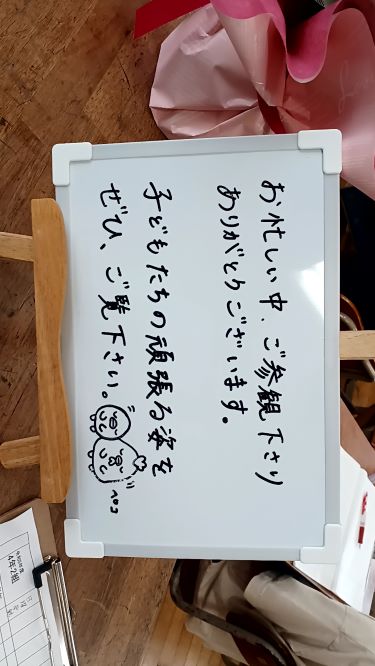 お忙しい中、ご参観下さり
ありがとうございます。
子どもたちの頑張る姿を
ぜひ、ご覧下さい。
ペコ
4年2組